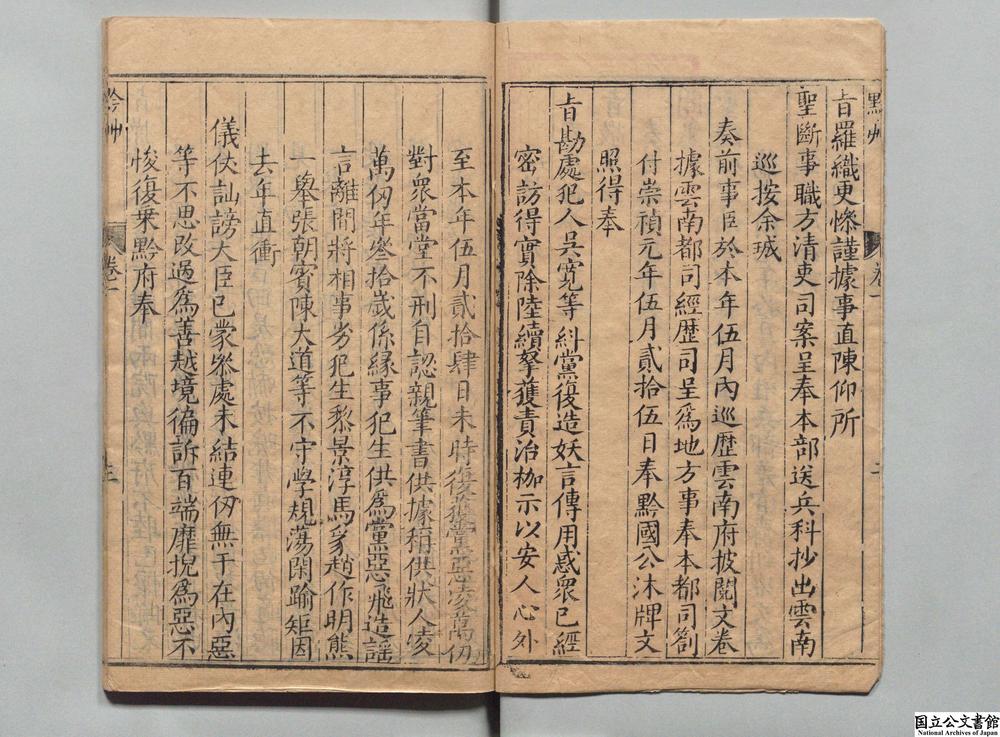 黔艸 卷一 二
旨羅織更慘謹據事直陳仰所
聖斷事職方清吏司案呈奉本部送兵科抄出雲南
巡按余瑊
奏前事臣於本年伍月內巡歷雲南府披閱文卷
據雲南都司經歷司呈爲地方事奉本都司劄
付崇禎元年伍月貳拾伍日奉黔國公沐牌文
照得奉
旨勘處犯人吳寬等糾黨復造妖言傳用惑衆已經
密訪得實除陸續拏獲責治枷示以安人心外
至本年伍月貳拾肆日未時復獲黨惡凌萬仞
對衆當堂不刑自認親筆書供據稱供狀人凌
萬仞年叄拾歲係緣事犯生供爲黨惡飛造謠
言離間將相事劣犯生黎景淳馬豸趙作明熊
一舉張朝賓陳大道等不守學規蕩閑踰矩因
去年直衝
儀仗訕謗大臣已蒙叅處未結連仞無干在內惡
等不思改過爲善越境徧訴百端靡捝爲惡不
悛復乗黔府奉
黔艸 卷一
国立公文書館
National Archives of Japan